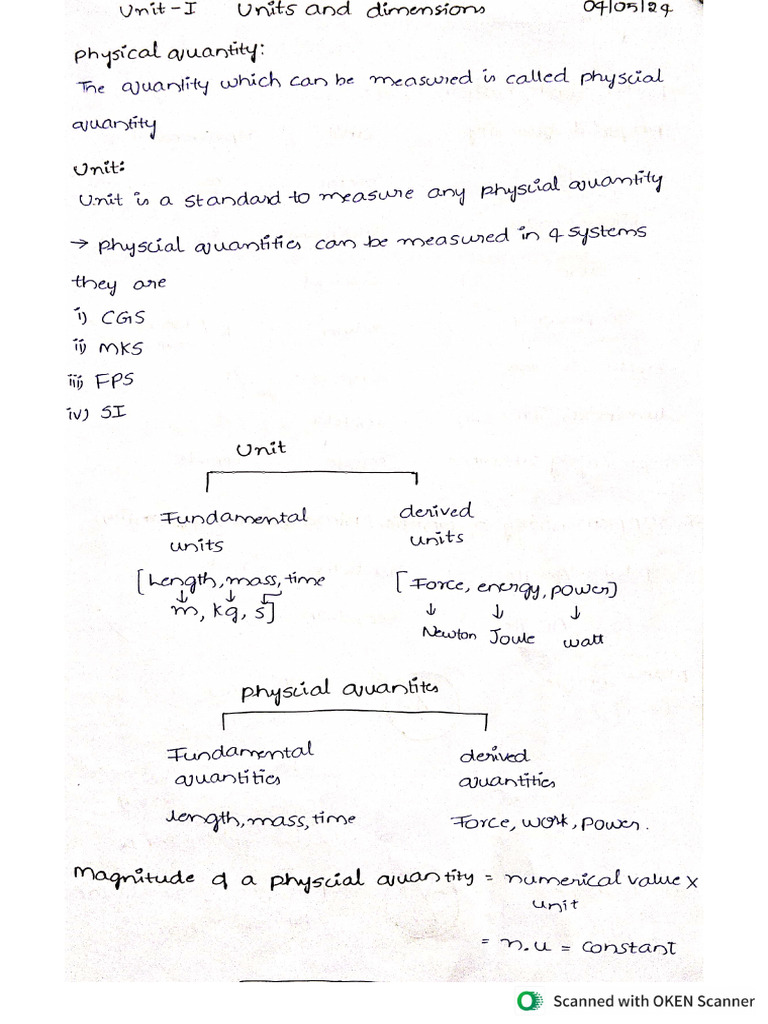 Unit-I Units and dimensions 04/05/24
physical quantity:
The quantity which can be measured is called physcial
quantity
Unit:
Unit is a standard to measure any physcial quantity
→ physcial quantities can be measured in 4 systems
they are
i) CGS
ii) MKS
iii) FPS
iv) SI
Unit
Fundamental units
derived units
[Length, mass, time
↓ ↓ ↓
m, kg, s]
[Force, energy, power]
↓ ↓ ↓
Newton Joule watt
physcial quantites
Fundamental quantities
derived quantities
length, mass, time
Force, work, power.
Magnitude of a physcial quantity = numerical value ×
unit
= n.u = constant
Scanned with OKEN Scanner